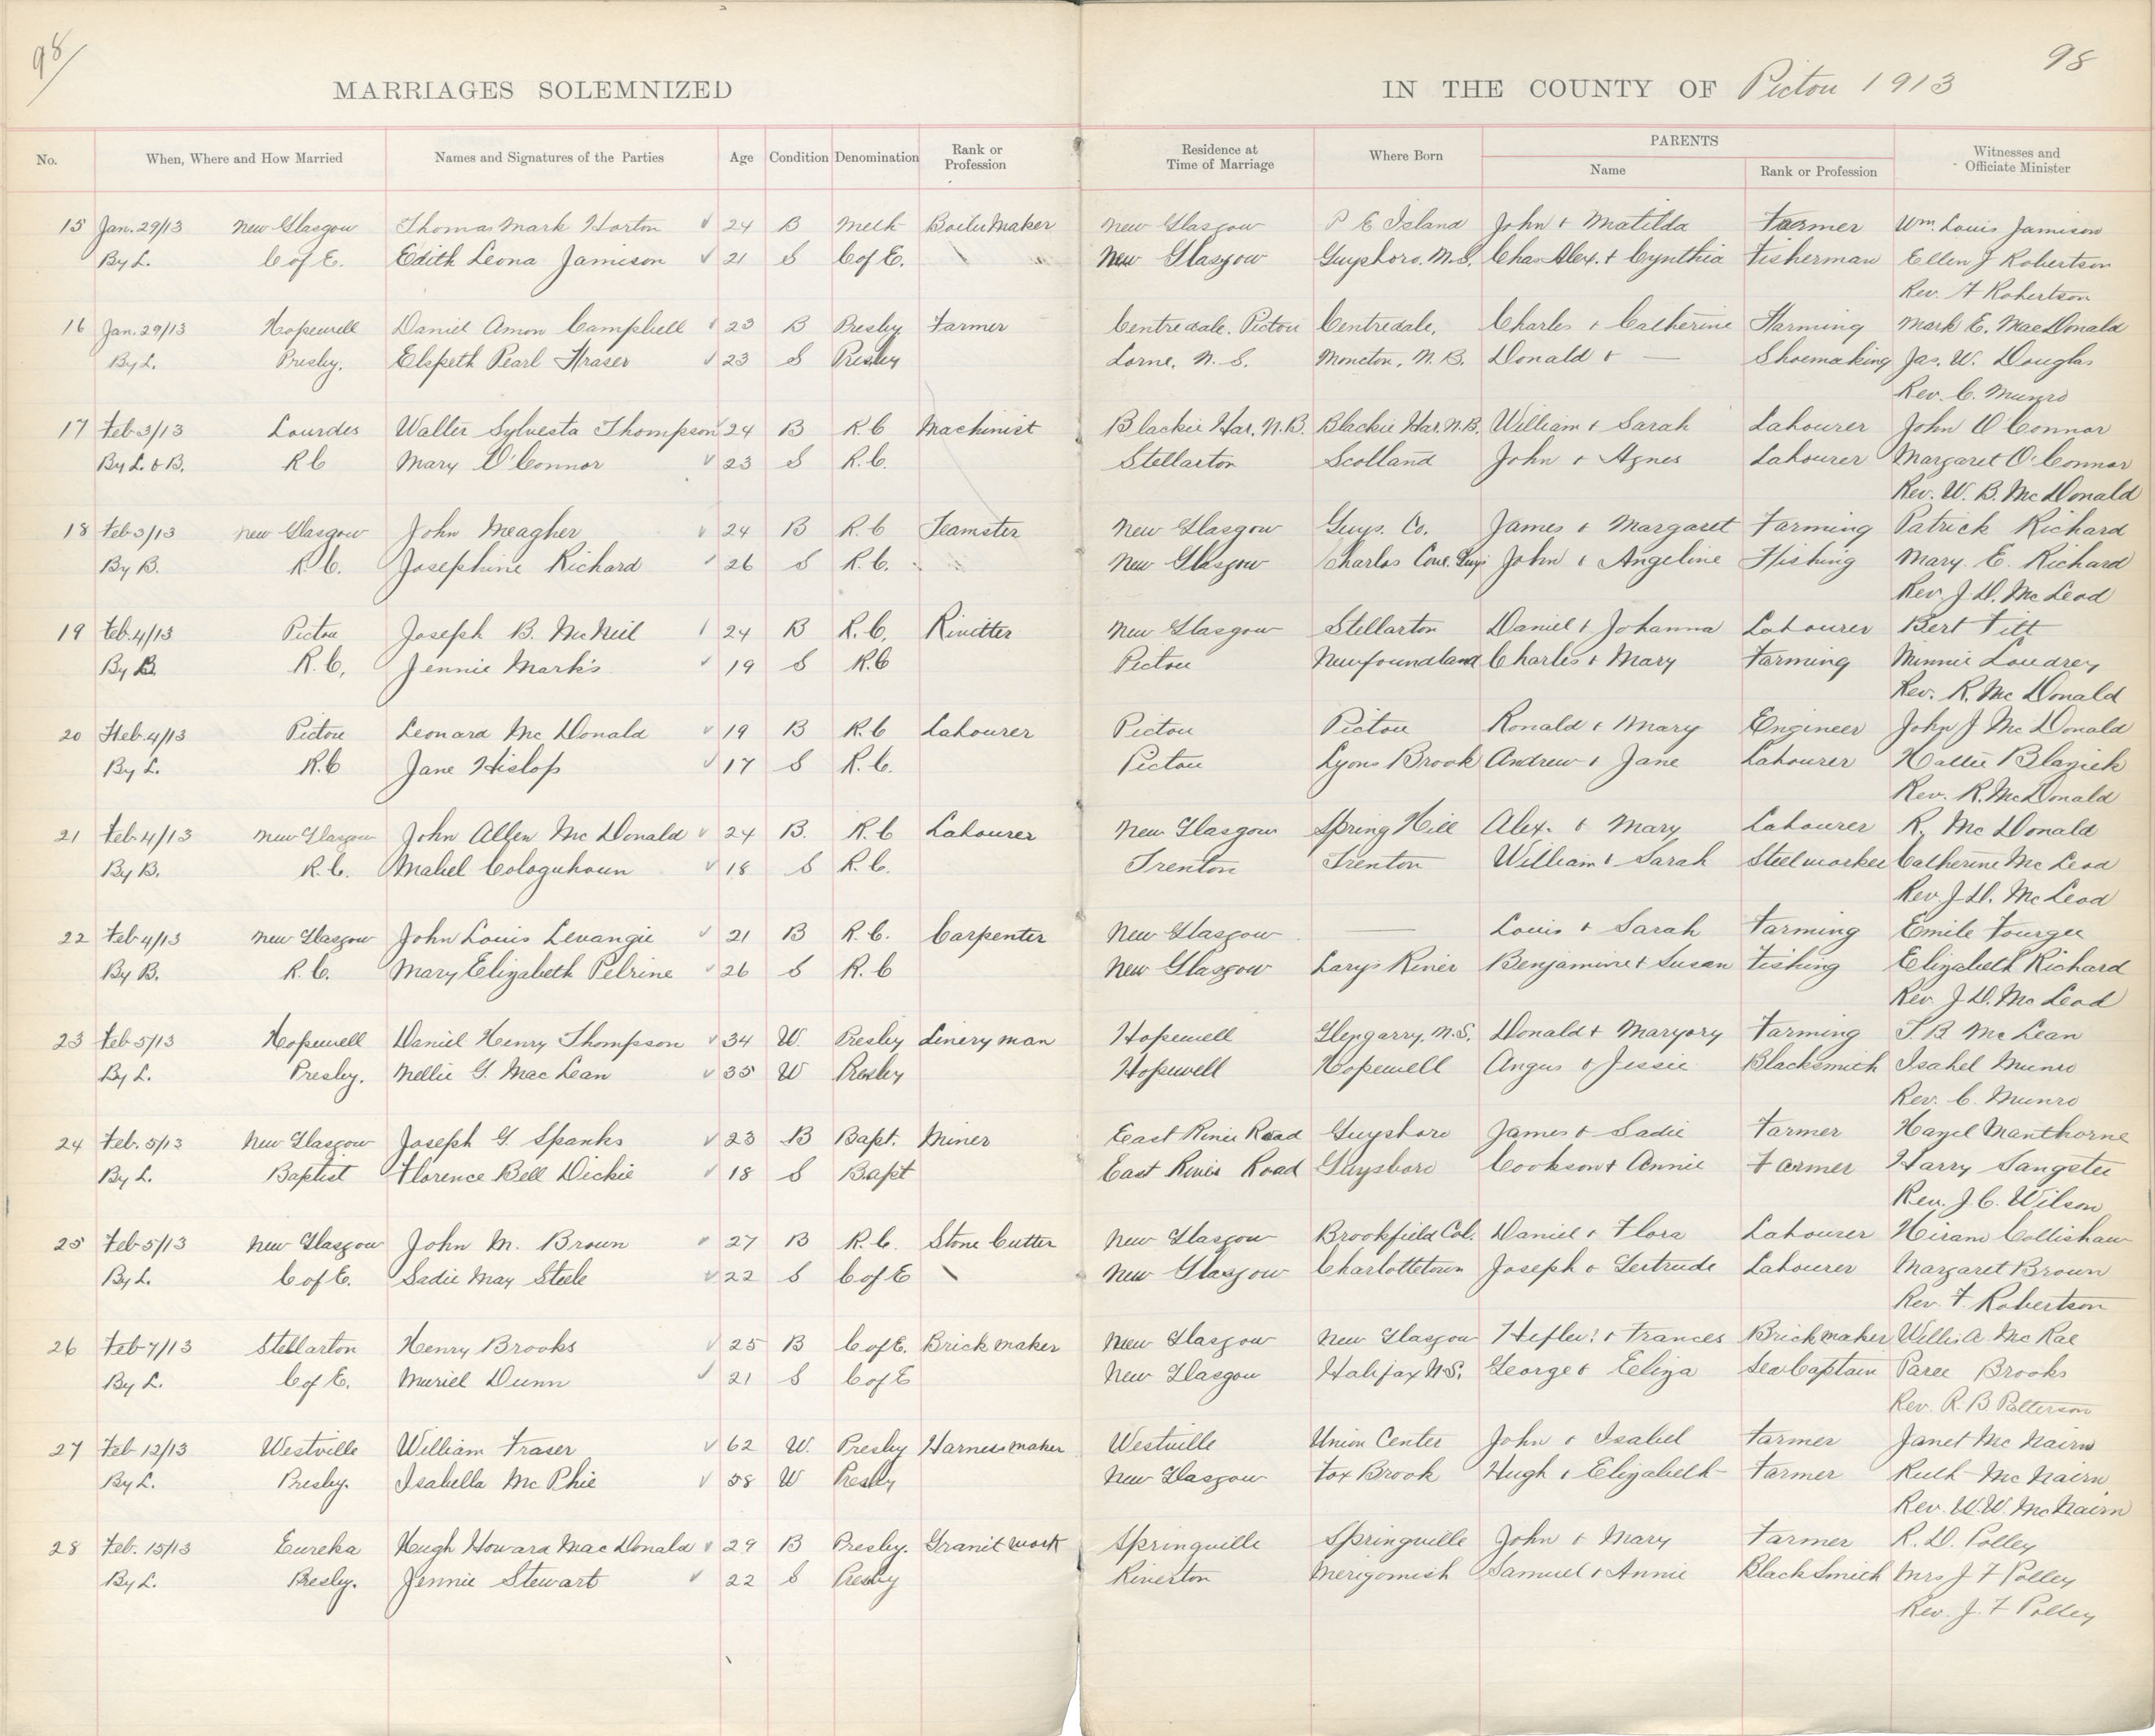 98
98
MARRIAGES SOLEMNIZED IN THE COUNTY OF Pictou 1913
No. When, Where and How Married Names and Signatures of the Parties Age Condition Denomination Rank or Profession Residence at Time of Marriage Where Born PARENTS Name Rank or Profession Witnesses and Officiate Minister
15 Jan. 29/13 New Glasgow Thomas Mark Horton 24 B Meth Boiler Maker New Glasgow P E Island John & Matilda Farmer Wm. Louis Jamison
By L. C of E. Edith Leona Jamieson 21 S C of E. New Glasgow Guysboro. N.S. Chas Alex. & Cynthia Fisherman Ellen J Robertson
Rev. F Robertson
16 Jan. 29/13 Hopewell Daniel Amon Campbell 23 B Presby Farmer Centredale, Pictou Centredale, Charles & Catherine Farming Mark E. MacDonald
By L. Presby. Elspeth Pearl Fraser 23 S Presby Lorne, N. S. Moncton, N.B. Donald & — Shoemaking Jas. W. Douglas
Rev. C. Munro
17 Feb 3/13 Lourdes Walter Sylvesta Thompson 24 B R.C Machinist Blackie Har. N.B. Blackie Har. N.B. William & Sarah Labourer John O Connor
By L. & B. R C Mary O'Connor 23 S R.C. Stellarton Scotland John & Agnes Labourer Margaret O'Connor
Rev. W. B. McDonald
18 Feb 3/13 New Glasgow John Meagher 24 B R.C Teamster New Glasgow Guys. Co. James & Margaret Farming Patrick Richard
By B. R C. Josephine Richard 26 S R.C. New Glasgow Charlos Cove. Guys John & Angeline Fishing Mary. E. Richard
Rev. J. D. McLeod
19 Feb. 4/13 Pictou Joseph B. McNeil 24 B R.C. Rivitter New Glasgow Stellarton Daniel & Johanna Labourer Bert Titt
By B R.C. Jennie Mark's 19 S R.C Pictou Newfoundland Charles & Mary Farming Minnie Loudrey
Rev. R. McDonald
20 Feb. 4/13 Pictou Leonard McDonald 19 B R.C Labourer Pictou Pictou Ronald & Mary Engineer John J McDonald
By L. R.C Jane Hislop 17 S R.C. Pictou Lyons Brook Andrew & Jane Labourer Hattie
Rev. R. McDonald
21 Feb. 4/13 New Glasgow John Allen McDonald 24 B. R.C Labourer New Glasgow Spring Hill Alex. & Mary Labourer R. McDonald
By B. R.C. Mabel Cologuhoun 18 S R.C. Trenton Trenton William & Sarah Steelworker Catherine McLeod
Rev. J. D. McLeod
22 Feb 4/13 New Glasgow John Louis Levangie 21 B R.C. Carpenter New Glasgow — Louis & Sarah Farming Emile Fourgee
By B. R.C. Mary Elizabeth Pelrine 26 S R.C New Glasgow Larys River Benjamine & Susan Fishing Elizabeth Richard
Rev. J. D. McLeod
23 Feb 5/13 Hopewell Daniel Henry Thompson 34 W. Presby Linery man Hopewell Glengarry, N.S. Donald & Maryory Farming J. B McLean
By L. Presby. Nellie G. MacLean 35 W Presby Hopewell Hopewell Angus & Jessie Blacksmith Isabel Munro
Rev. C. Munro
24 Feb. 5/13 New Glasgow Joseph G. Spanks 23 B Bapt. Miner East River Road Guysboro James & Sadie Farmer Hazel Manthorne
By L. Baptist Florence Bell Dickie 18 S Bapt East River Road Guysboro Cookson & Annie Farmer Harry Sangster
Rev. J. C. Wilson
25 Feb 5/13 New Glasgow John M. Brown 27 B R.C. Stone Cutter New Glasgow Brookfield Col. Daniel & Flora Labourer Hiram Collishaw
By L. C of E. Sadie May Steele 22 S C of E New Glasgow Charlottetown Joseph & Gertrude Labourer Margaret Brown
Rev. F. Robertson
26 Feb 7/13 Stellarton Henry Brooks 25 B C of E. Brick Maker New Glasgow New Glasgow & Frances Brickmaker Willis A. McRae
By L. C of E. Muriel Dunn 21 S C of E New Glasgow Halifax N.S. George & Eliza Sea Captain Brooks
Rev. R. B Patterson
27 Feb 12/13 Westville William Fraser 62 W. Presby Harness maker Westville Union Center John & Isabel Farmer Janet McNairn
By L. Presby. Isabella McPhie 58 W Presby New Glasgow Fox Brook Hugh & Elizabeth Farmer Ruth McNairn
Rev. W. W. McNairn
28 Feb. 15/13 Eureka Hugh Howard MacDonald 29 B Presby. Granit work Springville Springville John & Mary Farmer R. D. Polley
By L. Presby. Jennie Stewart 22 S Presby Riverton Merigomish Samuel & Annie BlackSmith Mrs J F Polley
Rev. J. F Polley